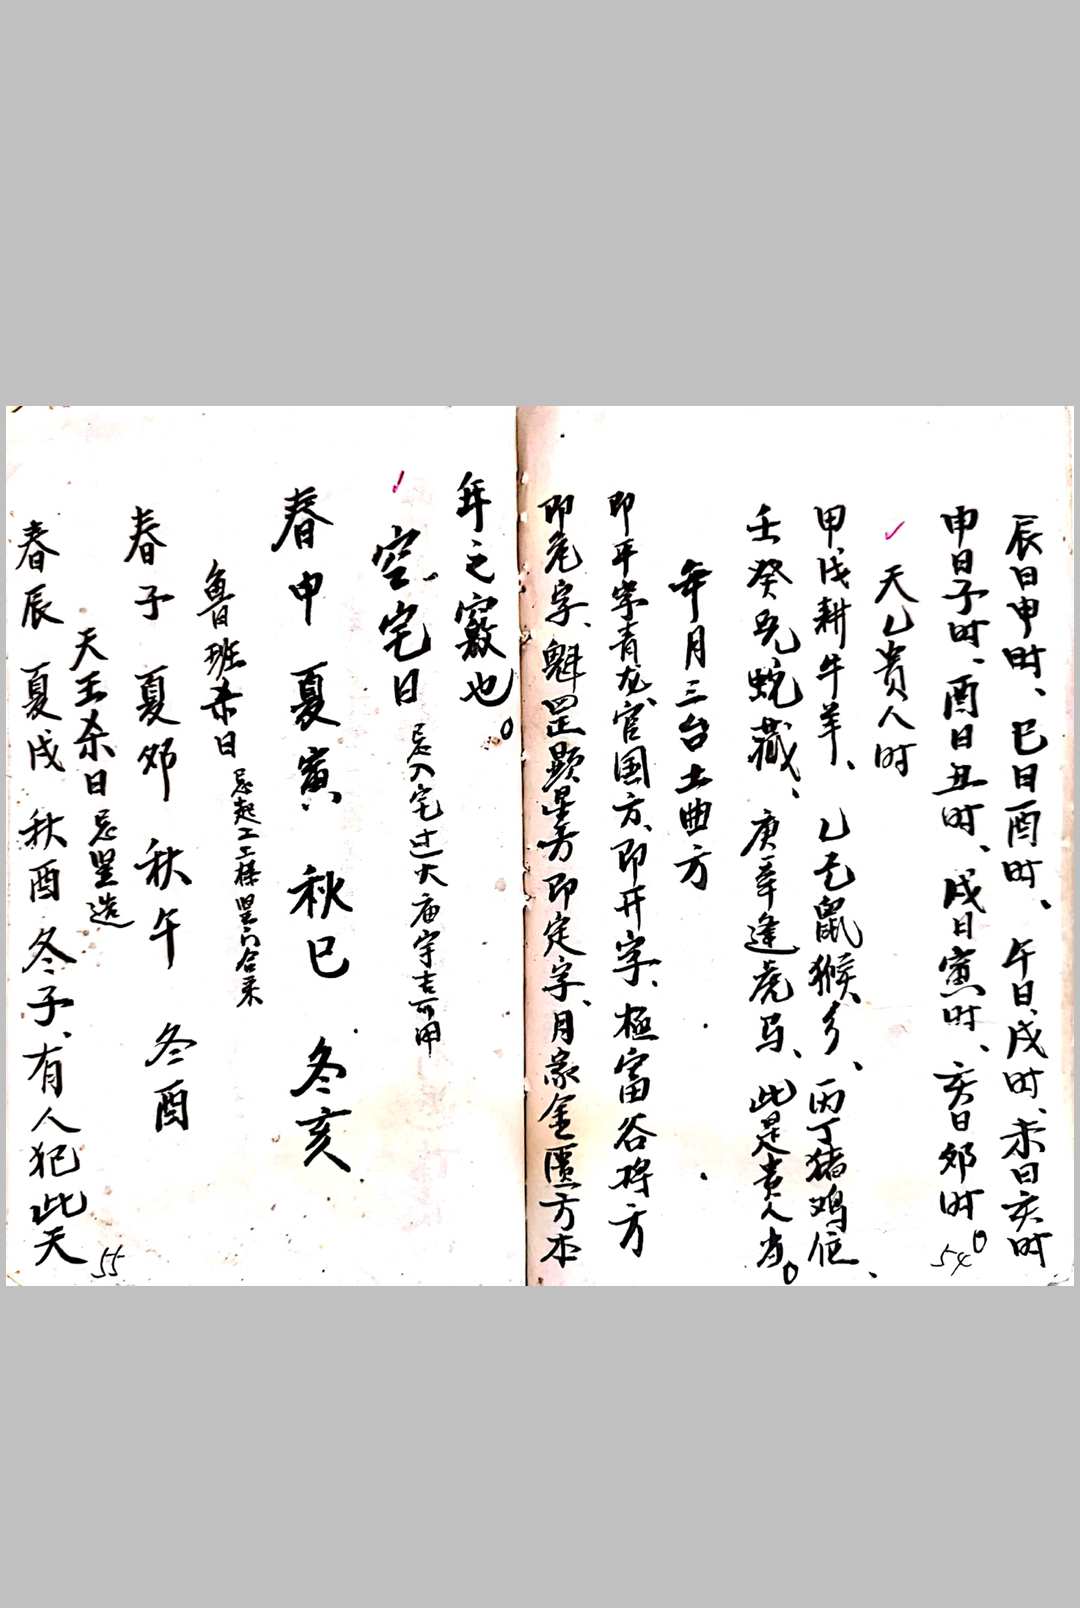 辰日申时、巳日酉时、午日戌时、未日亥时
申日子时、酉日丑时、戌日寅时、亥日卯时。
54
天乙贵人时
甲戊耕牛羊、乙己鼠猴乡、丙丁猪鸡位、
壬癸兔蛇藏、庚辛逢虎马、此是贵人当。
年月三台土曲方
即平字青龙、官国方、即开字、極富谷将方
即危字、魁罡显星方即定字、月家金匮方本
年之竅也。
空宅日 忌入宅过火庙宇吉可用
春申 夏寅 秋巳 冬亥
鲁班杀日 忌起工工樑竖门合来
春子 夏卯 秋午 冬酉
天王杀日 忌竖造
春辰 夏戌 秋酉 冬子、有人犯此天
55